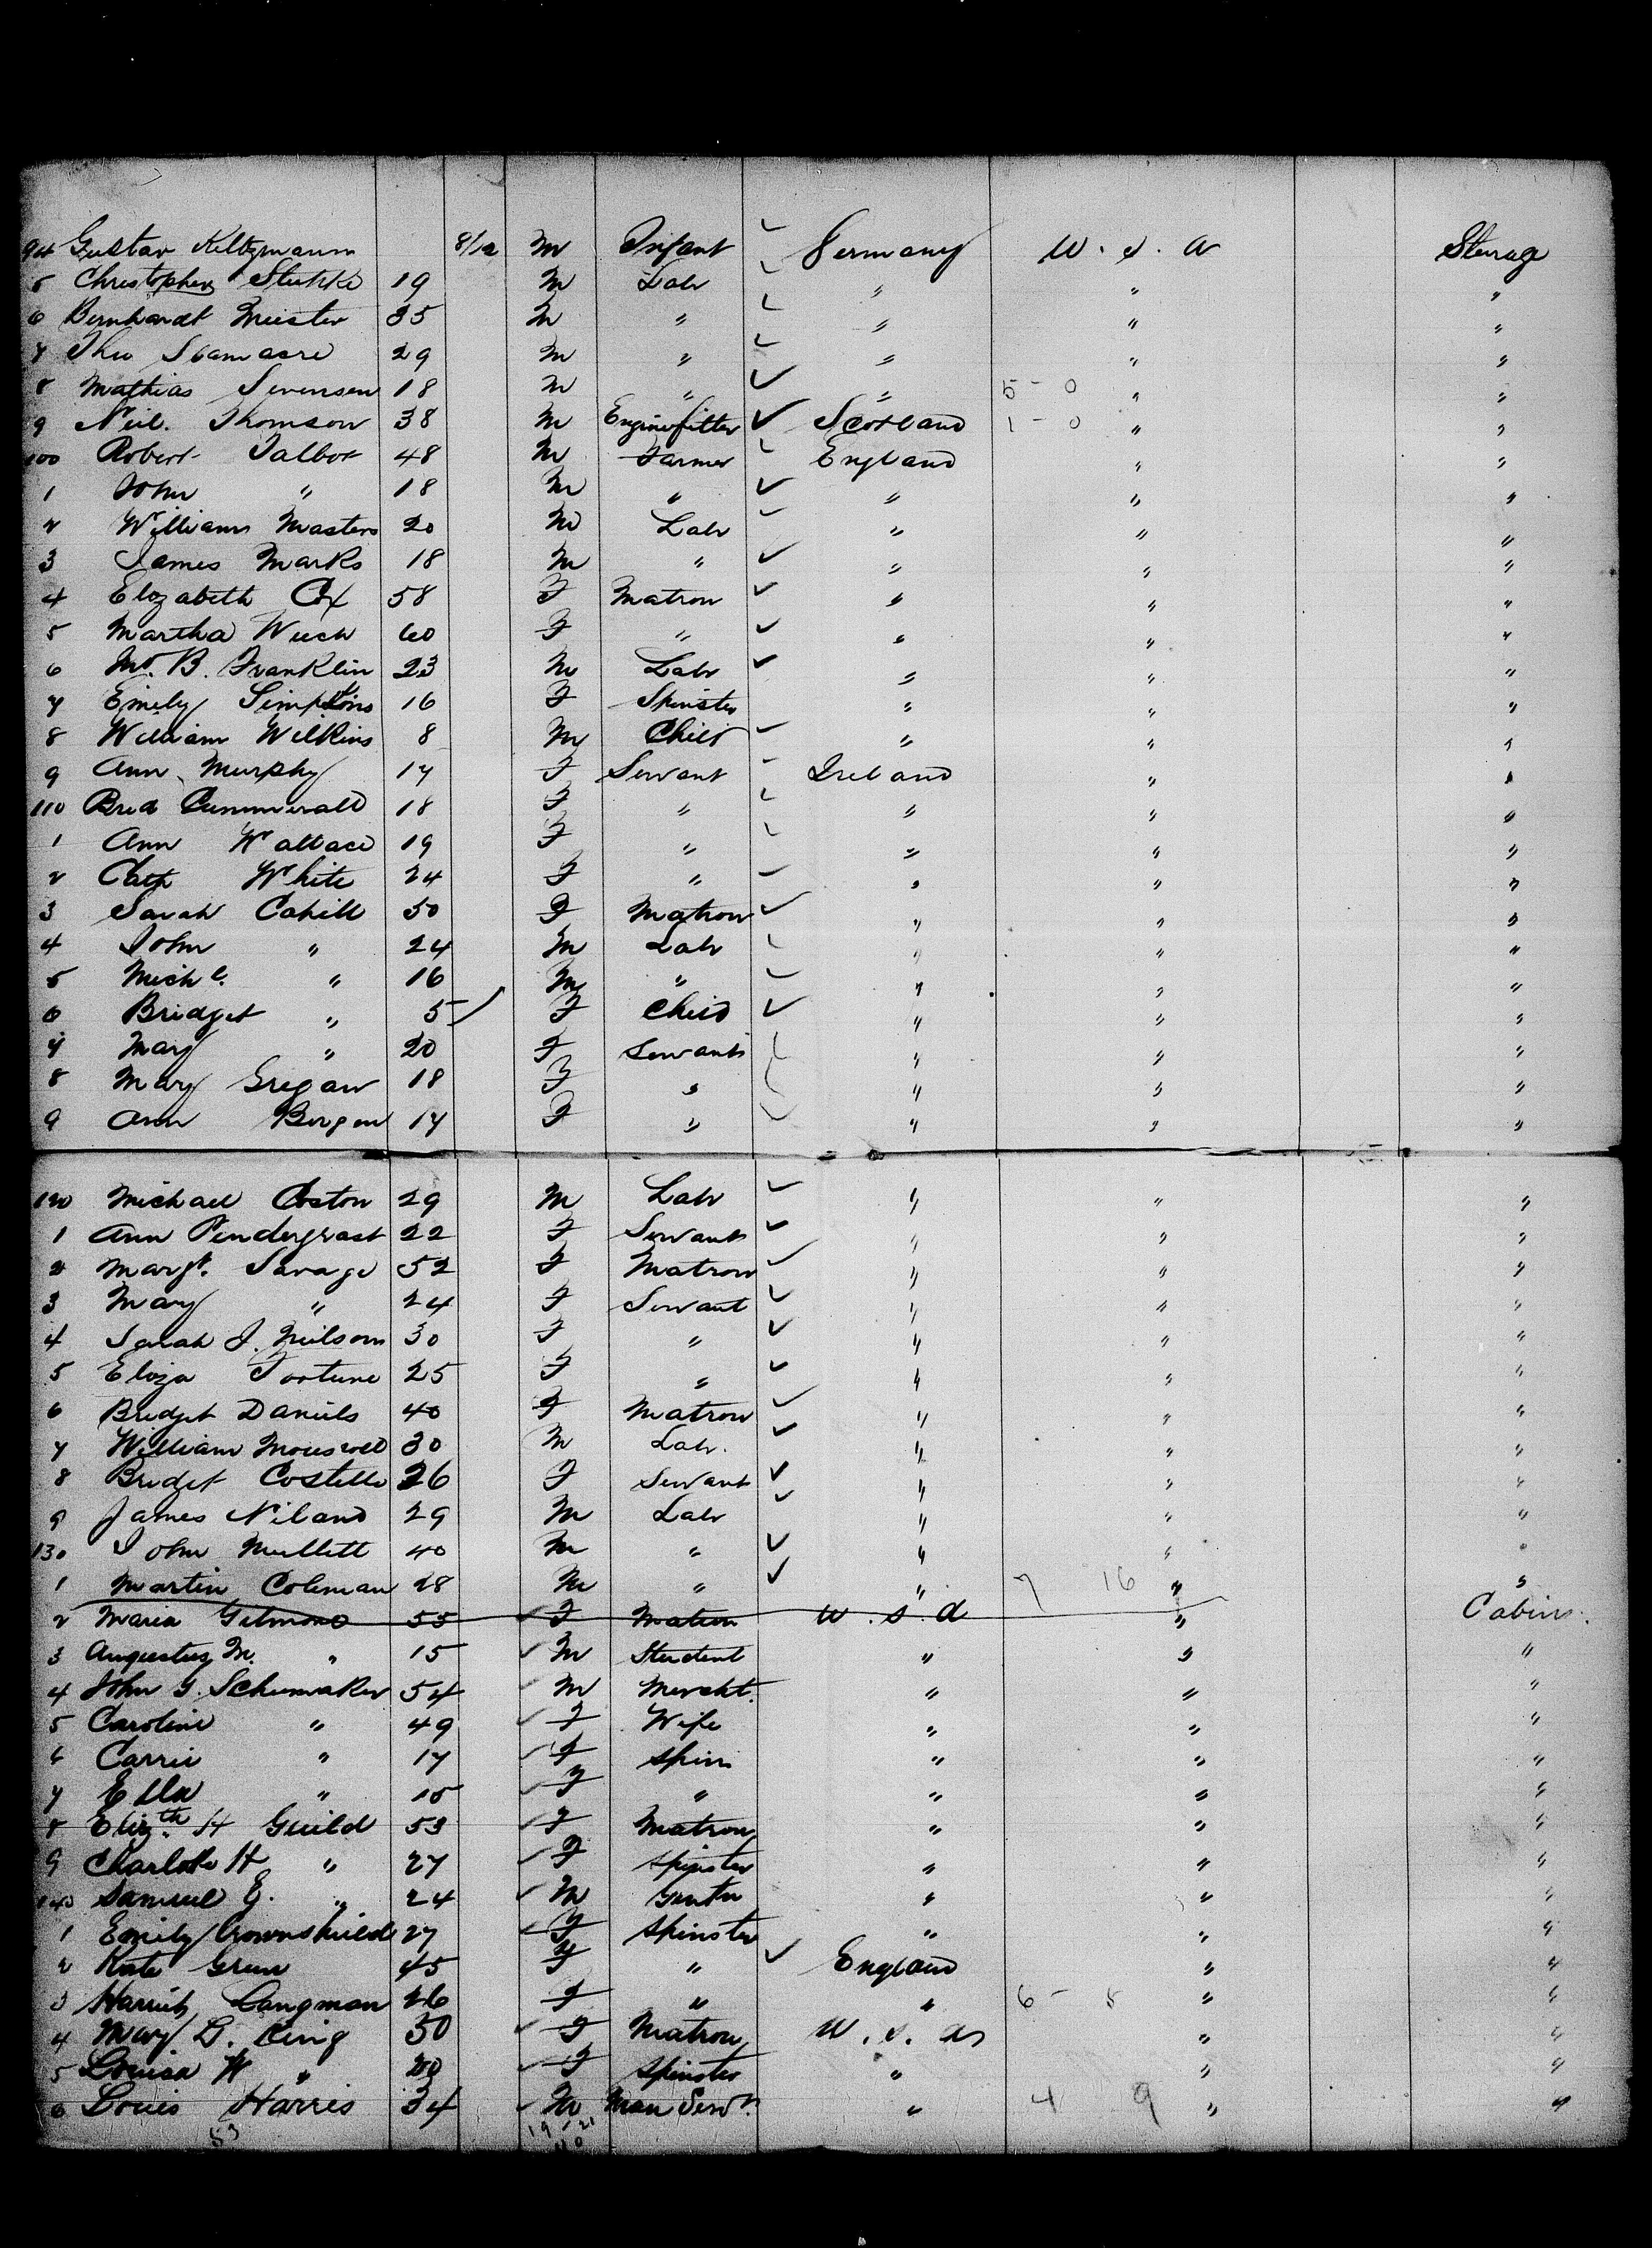 94 Gustav Kiltzmann 8/12 M Infant Germany U.S.A Sterage
5 Christopher 19 M Labr " " "
6 Bernhardt Meister 35 M " " " "
7 Theo 29 M " " " "
8 Mathias Sevensen 18 M " " 5-0 " "
9 Neil Thomson 38 M Enginefitter Scotland 1-0 " "
100 Robert Talbot 48 M Farmer England " "
1 John " 18 M " " " "
2 William Masters 20 M Labr " " "
3 James Marks 18 M " " " "
4 Elizabeth Cox 58 F Matron " " "
5 Martha 60 F " " " "
6 Jno. B. Franklin 23 M Labr " " "
7 Emily 16 F Spinster " " "
8 William Wilkins 8 M Child " " "
9 Ann Murphy 17 F Servant Ireland " "
110 Brid 18 F " " " "
1 Ann Wallace 19 F " " " "
2 Cath White 24 F " " " "
3 Sarah Cahill 50 F Matron " " "
4 John " 24 M Labr " " "
5 Michl. " 16 M " " " "
6 Bridget " 5 F Child " " "
7 Mary " 20 F Servant " " "
8 Mary Gregan 18 F " " " "
9 Ann Bergen 17 F " " " "
120 Michael Coston 29 M Labr " " "
1 Ann Pendergrast 22 F Servant " " "
2 Margt. Savage 52 F Matron " " "
3 Mary " 24 F Servant " " "
4 Sarah J. Neilson 30 F " " " "
5 Eliza Fortune 25 F " " " "
6 Bridget Daniels 40 F Matron " " "
7 William 30 M Labr. " " "
8 Bridget Costello 26 F Servant " " "
9 James Niland 29 M Labr " " "
130 John Mullett 40 M " " " "
1 Martin Coleman 28 M " " 7 16 " "
2 Maria Gilmore 55 F Matron U.S.A " Cabin.
3 Augustus M. " 15 M Student " " "
4 John G. Schumaker 54 M Mercht. " " "
5 Caroline " 49 F Wife " " "
6 Carrie " 17 F Spin " " "
7 Ella " 15 F " " " "
8 Elizth. H Guild 53 F Matron " " "
9 Charlotte H " 27 F Spinster " " "
140 Samuel E. " 24 M " " "
1 Emily Crownshield 27 F Spinster " " "
2 Kate Green 45 F " England " "
3 Harriet Langman 26 F " " 6-8 " "
4 Mary G. King 50 F Matron U.S.A " "
5 Louisa W " 20 F Spinster " " "
6 Louis Harris 34 M Man Servt. " 4 9 " "
53 19-21